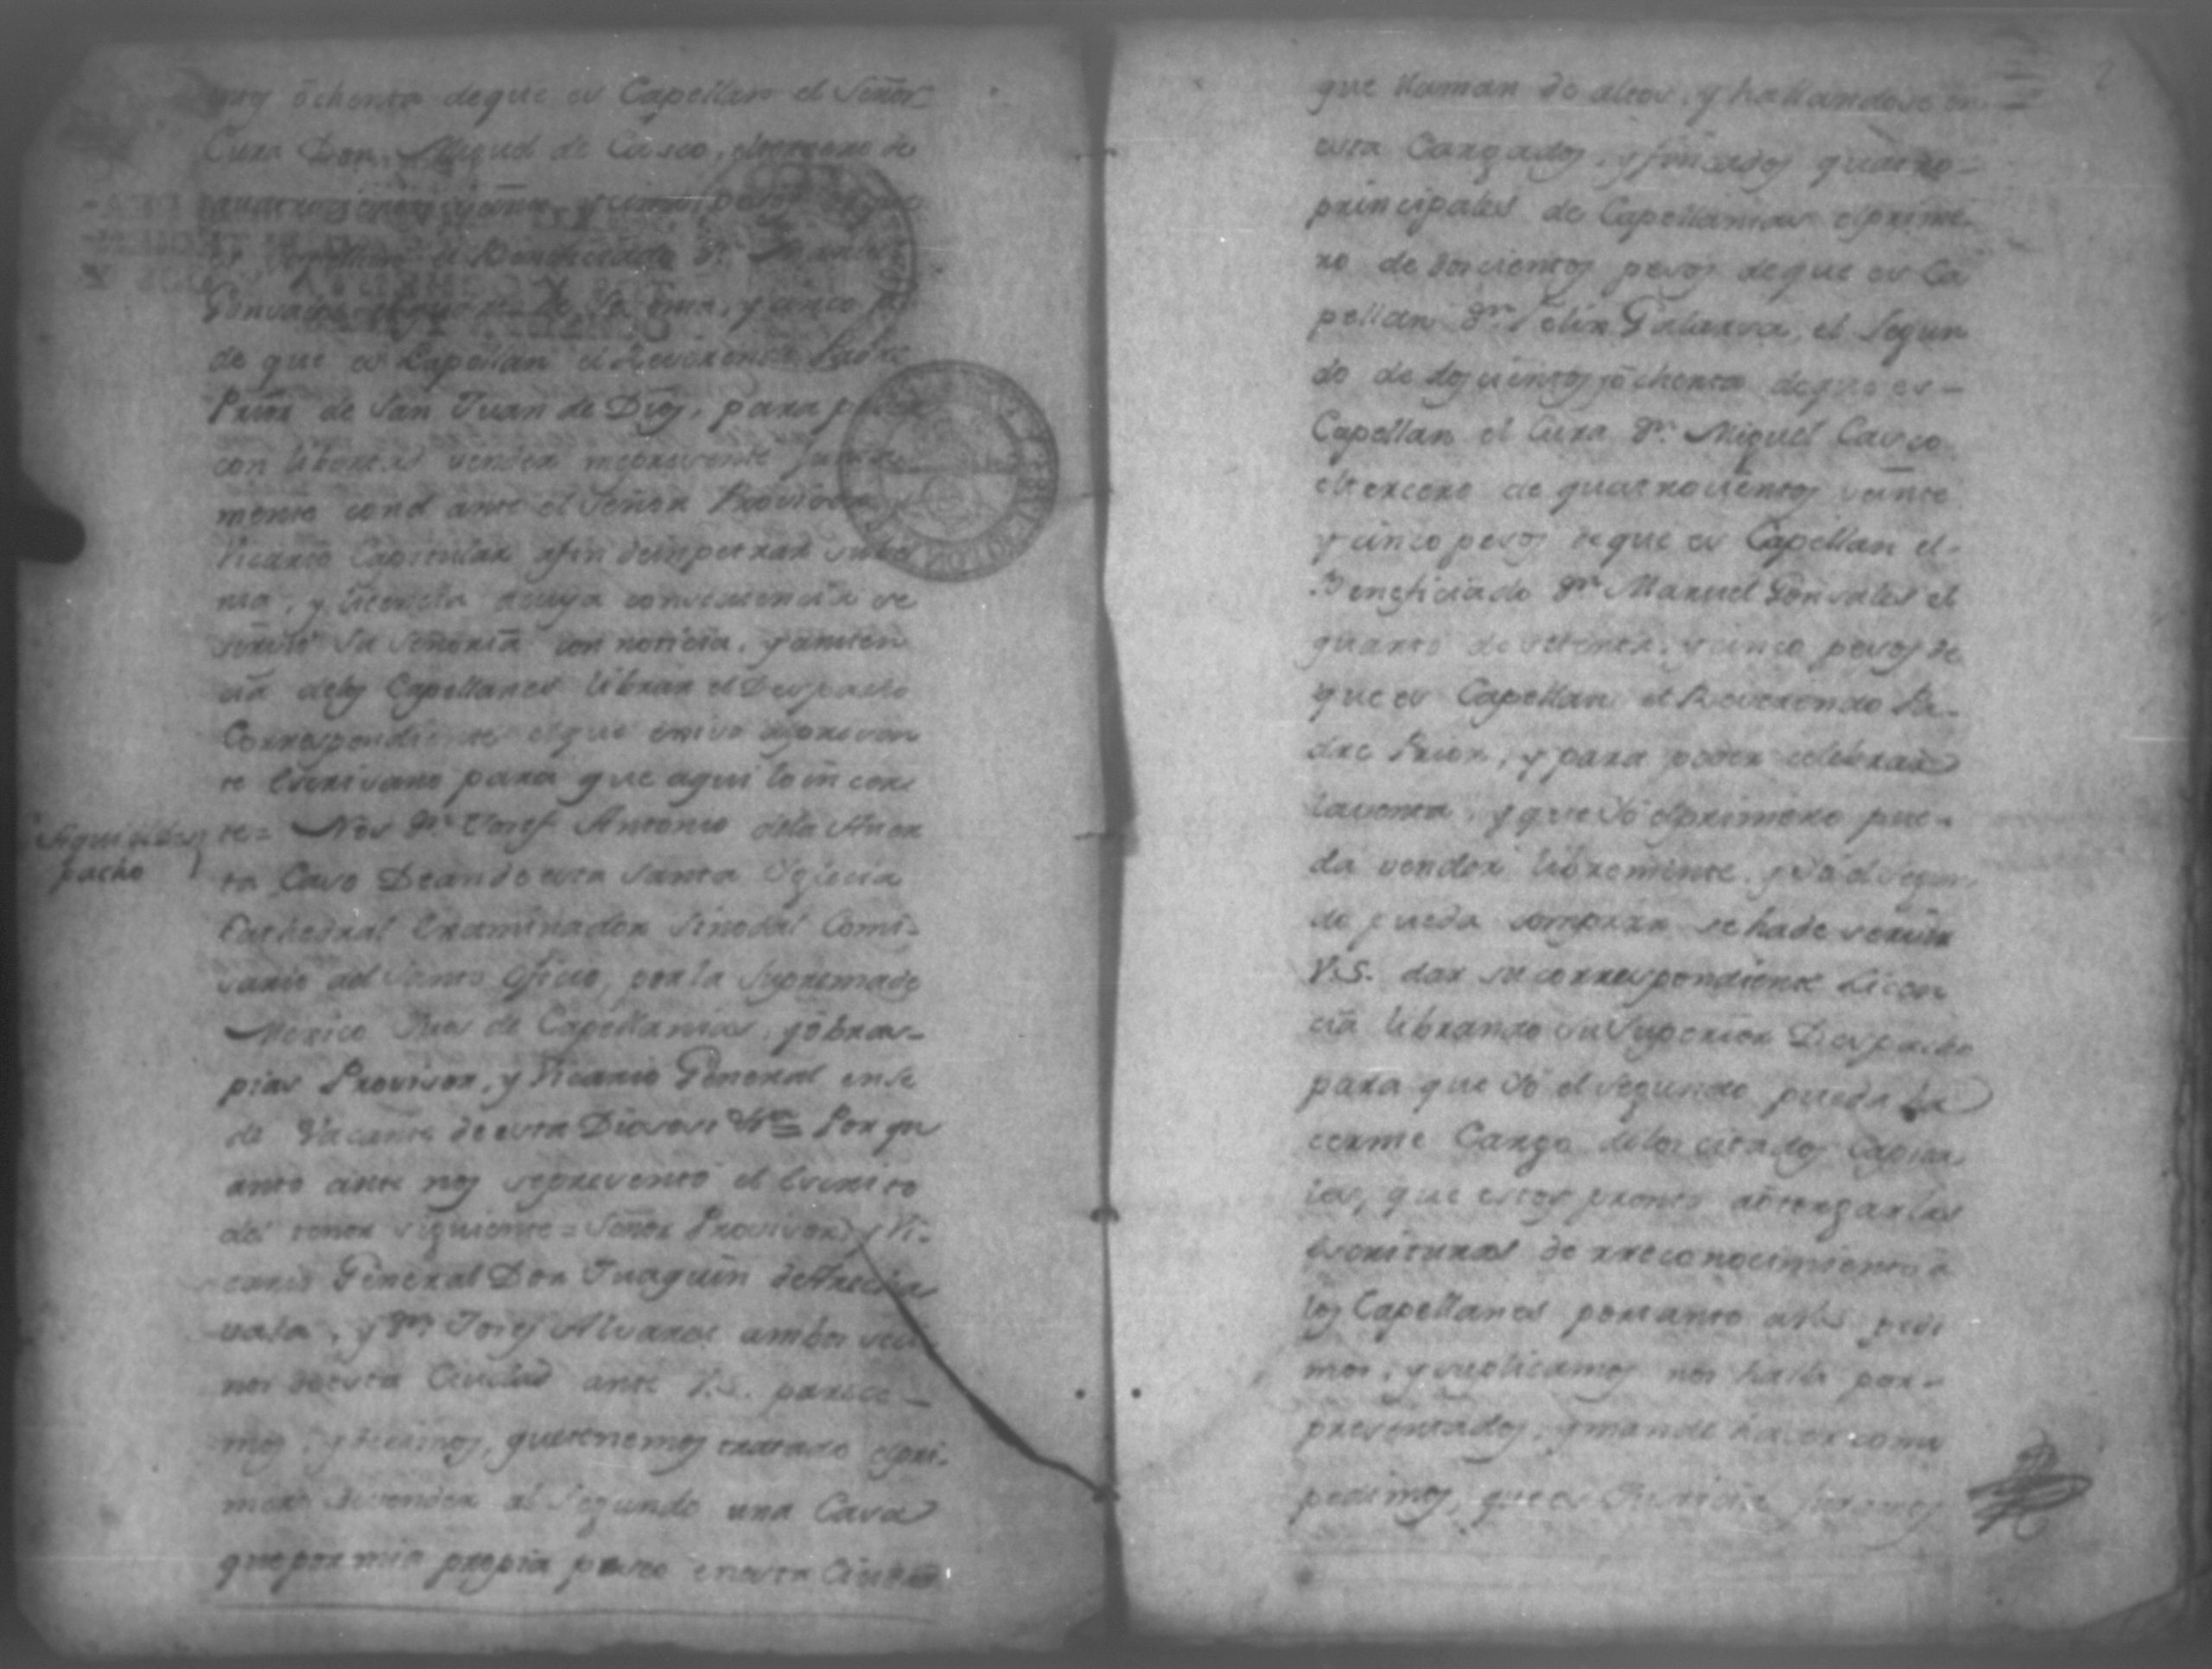 tos y ochenta de que es Capellan el Señor
Cura Don Miguel de Casco, el tercero de
quatrocientos veinte, y cinco pesos de que
es Capellan el Beneficiado Dn. Manuel
Gonsales el quarto de setenta, y cinco ps.
de que es Capellan el Reverendo Padre
Prior de San Juan de Dios, para poder
con libertad vender me presente junta
mente con el ante el Señor Provisor
Vicario Capitular afin de inpetrar su be
nia, y licencia a cuya consequencia se
sirvió su Señoria con noticia, y anuen
cia delos Capellanes librar el Despacho
Correspondiente el que exivo a presen
te Escrivano para que aqui lo in cor
Aqui el des
pacho
te = Nos Dn. Josef Antonio dela Huer
ta Caso Dean de esta Santa Yglecia
Cathedral Examinador Sinodal Comi-
sario del Santo Oficio, por la Suprema de
Mexico Jues de Capellanias, y obras-
pias Provisor, y Vicario General en Se
de Vacante de esta Diosesi &a = Por qu
anto ante nos se presentó el Escrito
del tenor siguiente = Señor Provisor y Vi-
cario General Don Juaquin de Arecha
vala, y Dn. Josef Alvares ambos veci
nos de esta Ciudad ante V.S. parece-
mos, y decimos, que tenemos tratado el pri-
mero de vender al Segundo una Casa
que por mia propia poseo en esta Ciudad
2
que llaman de altos, y hallandose en
esta Cargados, y fincados quatro-
principales de Capellanias el prime-
ro de doscientos pesos de que es Ca
pellan Dn. Felix Galarsa, el Segun
do de doscientos y ochenta de que es-
Capellan el Cura Dn. Miguel Casco
el tercero de quatrocientos veinte
y cinco pesos de que es Capellan el-
Beneficiado Dn. Manuel Gonsales el
quarto de setenta, y cinco pesos de
que es Capellan el Reverendo Pa-
dre Prior, y para poder celebrar
la venta, y que Yó el primero pue-
da vender libremente, y Yo el segun
do pueda comprar se ha de servir
V.S. dar su correspondiente Licen
cia librando su Superior Despacho
para que Yó el segundo pueda ha
cerme Cargo delos citados Capita
les, que estoy pronto a otorgar las
Escrituras de rreconocimiento á
los Capellanes por tanto á V.S. pedi
mos, y suplicamos nos haiia por-
presentados, y mande hacer como
pedimos, que es Justicia juramos